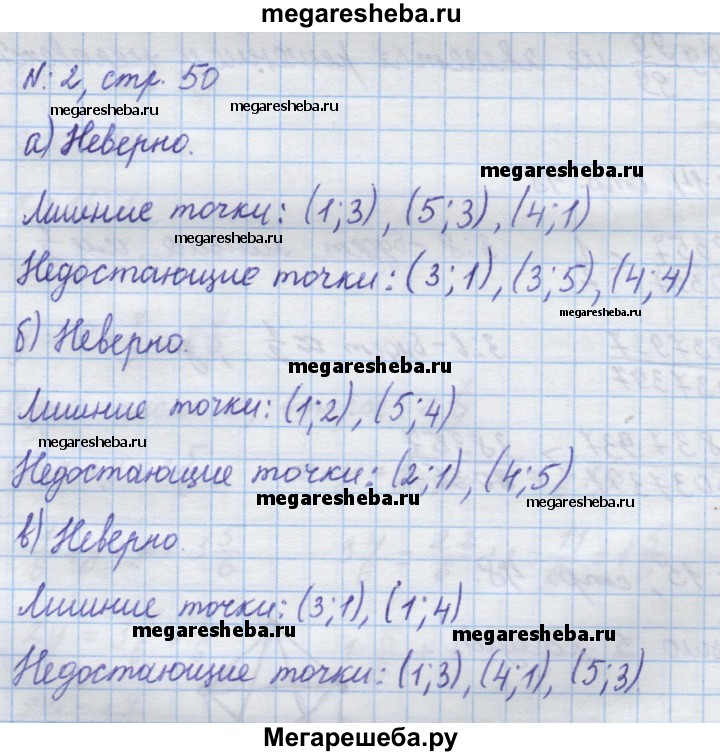 megaresheba.ru
№: 2, стр. 50
megaresheba.ru
а) Неверно.
megaresheba.ru
Лишние точки: (1;3), (5;3), (4;1)
megaresheba.ru
Недостающие точки: (3;1), (3;5), (4;4)
megaresheba.ru
б) Неверно.
megaresheba.ru
Лишние точки: (1;2), (5;4)
megaresheba.ru
Недостающие точки: (2;1), (4;5)
megaresheba.ru
megaresheba.ru
в) Неверно
Лишние точки: (3;1), (1;4)
megaresheba.ru
megaresheba.ru
Недостающие точки: (1;3), (4;1), (5;3)
Мегарешеба.ру